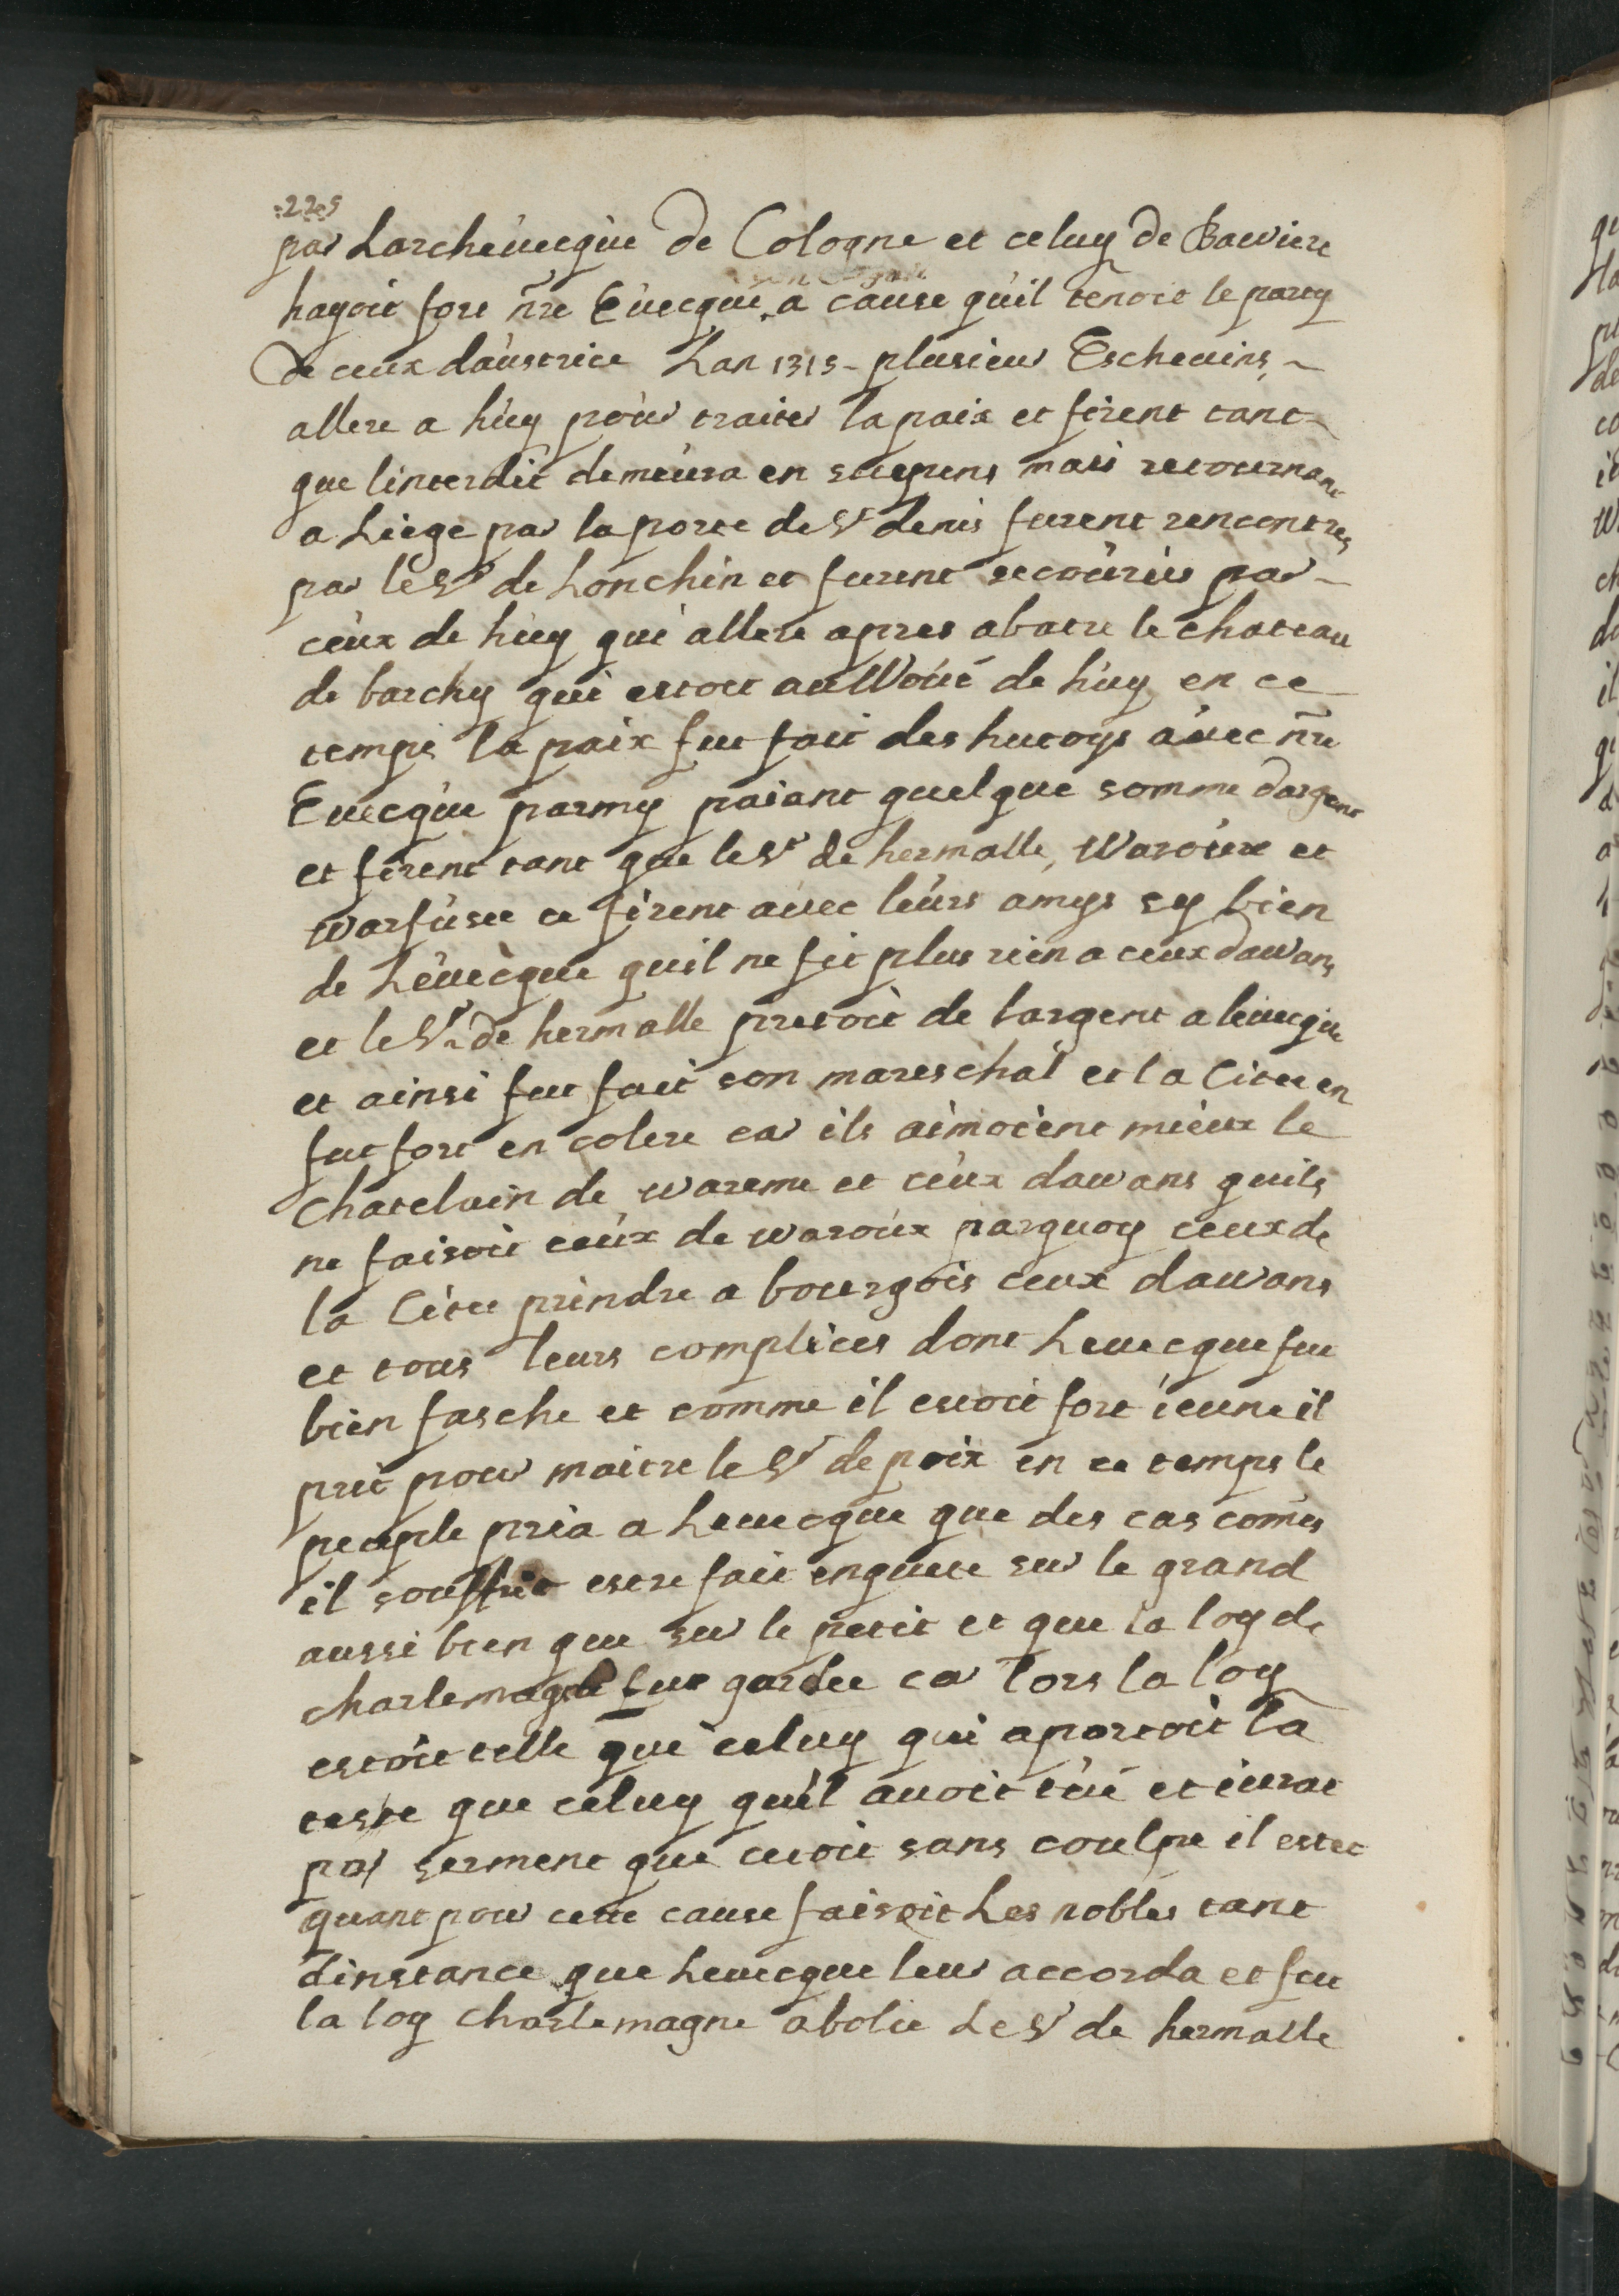 225
par Larchevecque de Cologne et celuy de Baviere
hayoit fort nr̃e Evecque a cause quil tenoit le party
de ceux daustrice Lan 1315 plusieur Eschevins
allere a huy pour traiter la paix et firent tant
que linterdit demeura en suspens mais retournant
a Liege par la porte de St denis furent rencontres
par le Sr de Lonchin et furent secourus par
ceux de huy qui allere apres abatre le chateau
de barchy qui estoit au Woué de huy en ce
temps la paix fut fait des hutoys avec nr̃e
Evecque parmy paiant quelque somme dargent
et firent tant que le Sr de hermalle, Waroux et
warfusee ce firent avec leurs amys sy bien
de Levecque quil ne fit plus rien a ceux dawans
et le Sr de hermalle pretoit de largent a levecque
et ainsi fut fait son mareschal et la Citee en
fut fort en colere car ils aimoient mieux le
chatelain de wareme et ceux dawans quils
ne faisoit ceux de waroux parquoy ceux de
la Citee prindre a bourgois ceux dawans
et tous leurs complices dont Levecque fut
bien fasche et comme il estoit fort ieune il
prit pour maitre le Sr de poix en ce temps le
peuple pria a Levecque que des cas com̃is
il souffrit estre fait enquete sur le grand
aussi bien que sur le petit et que la loy de
charlemagne fut gardee car lors la loy
estoit telle que celuy qui aportoit la
teste que celuy quil avoit tué et iurat
par serment que cetoit sans coulpe il estet
quant pour cette cause faisoit Les nobles tant
dinstance que Levecque leur accorda et fut
la loy charlemagne abolie Le Sr de hermalle